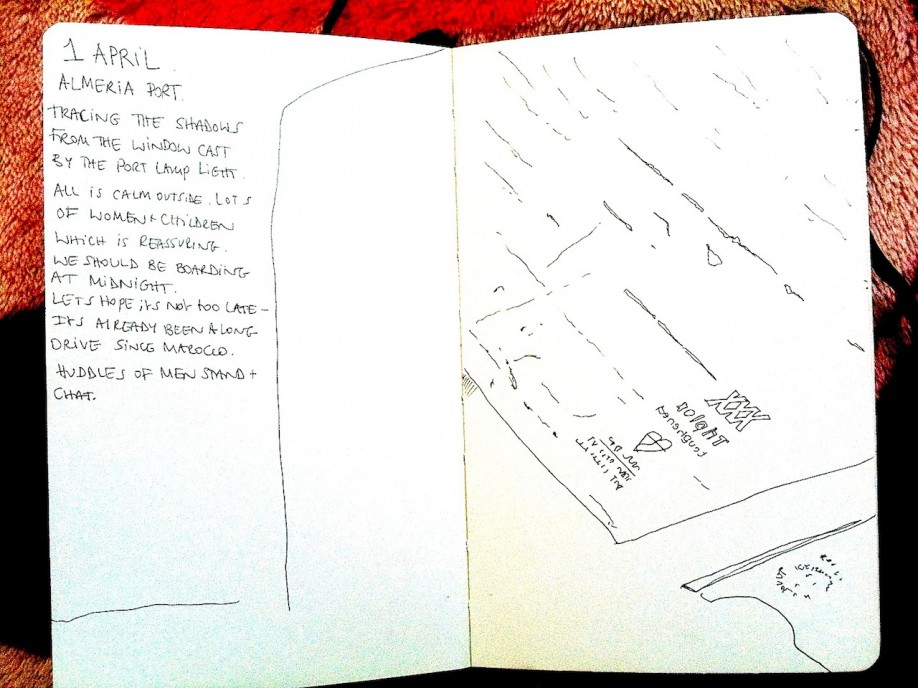 1 APRIL
ALMERIA PORT.
TRACING THE SHADOWS
FROM THE WINDOW CAST
BY THE PORT LAMP LIGHT.
ALL IS CALM OUTSIDE. LOTS
OF WOMEN + CHILDREN
WHICH IS REASSURING.
WE SHOULD BE BOARDING
AT MIDNIGHT.
LETS HOPE ITS NOT TOO LATE -
ITS ALREADY BEEN A LONG
DRIVE SINCE MAROCCO.
HUDDLES OF MEN STAND +
CHAT.
XXX